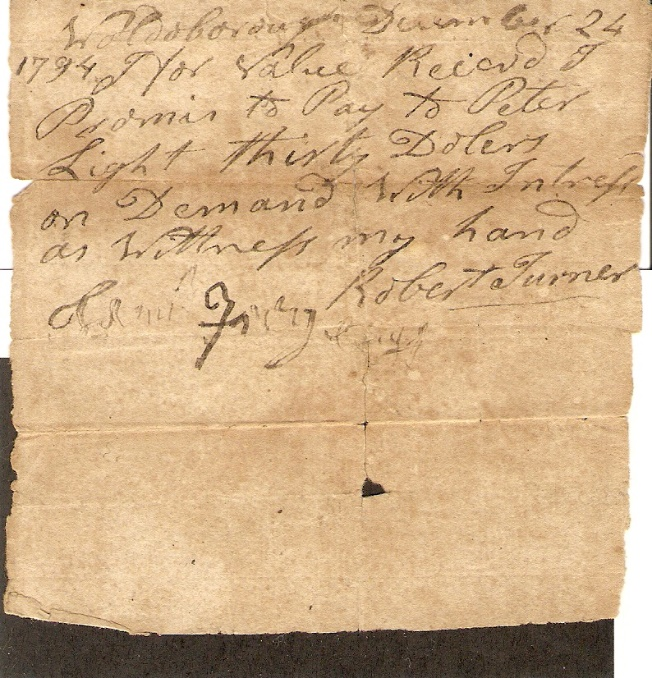 Waldoborough December 24
1794 I for Value Recievd I
Promis to Pay to Peter
Light thirty Dolers
on Demand With Intress
as Wittness my hand
Robert Turner